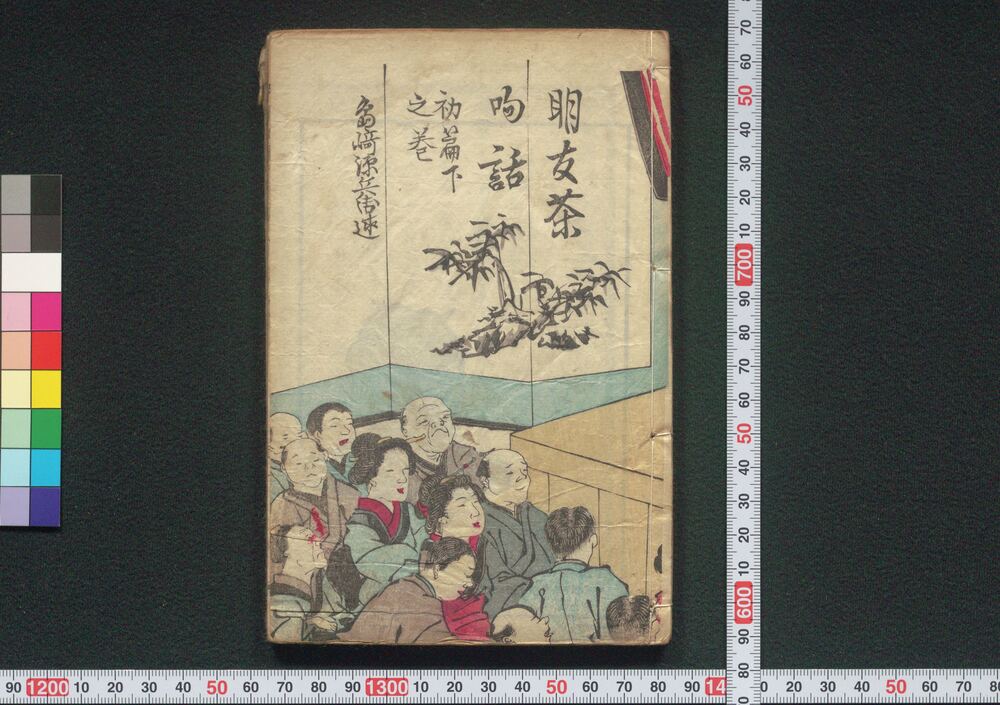 明友茶
呴話
初篇下
之巻
島﨑源兵衛述
90 1200 10 20 30 40 50 60 70 80 90 1300 10 20 30 40 50 60 70 80 90 14
0 20 30 40 50 60 70 80
70 60 50 40 30 20 10 700 90 80 70 60 50 40 30 20 10 600 90 80